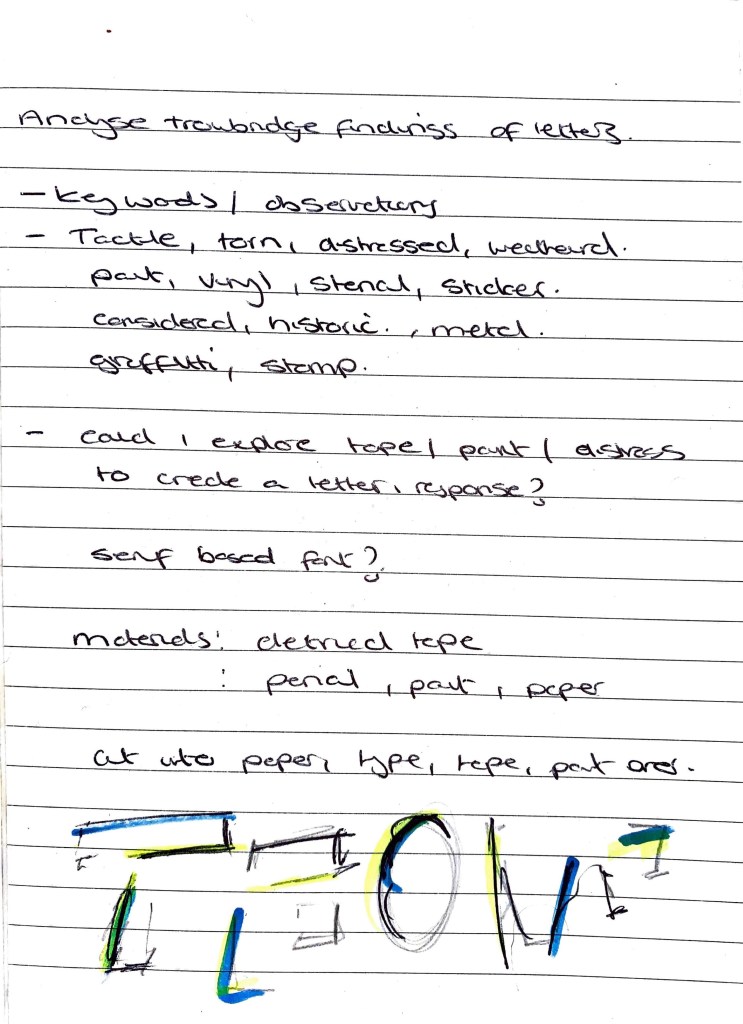 Analyse trowbridge findings of letters.
- Keywords / observations
- Tactile, torn, distressed, weathered.
paint, vinyl, stencil, sticker.
considered, historic., metal.
graffitti, stamp.
- could i explore tape / paint / distress
to create a letter, response?
serif based font?
materials: electrical tape
: pencil, paint, paper
cut into paper, type, tape, paint over.